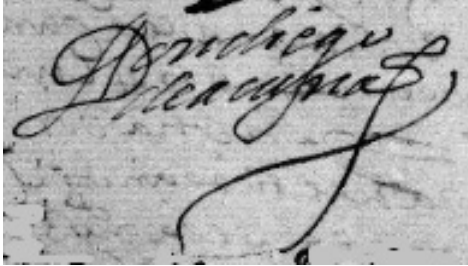 Don diego
de acuña